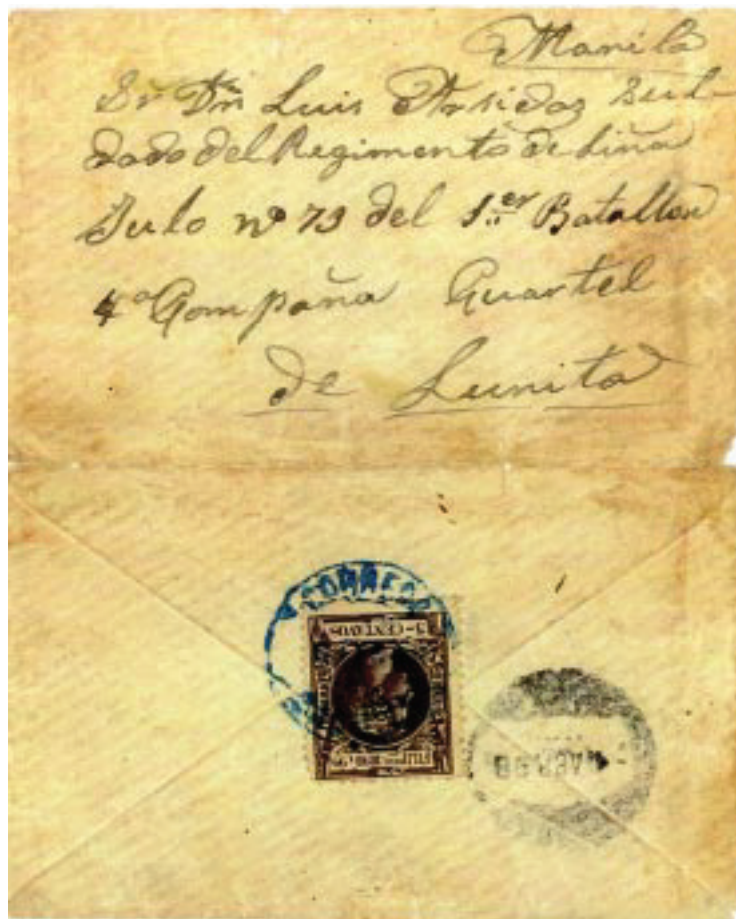 Manila
Sr Dn Luis Arsidas Sul-
dado del Regimento de Liña
Julo nº 73 del 1.er Batallon
4ª Compaña Quartel
de Lunita
CORREOS
5 CENTAVOS